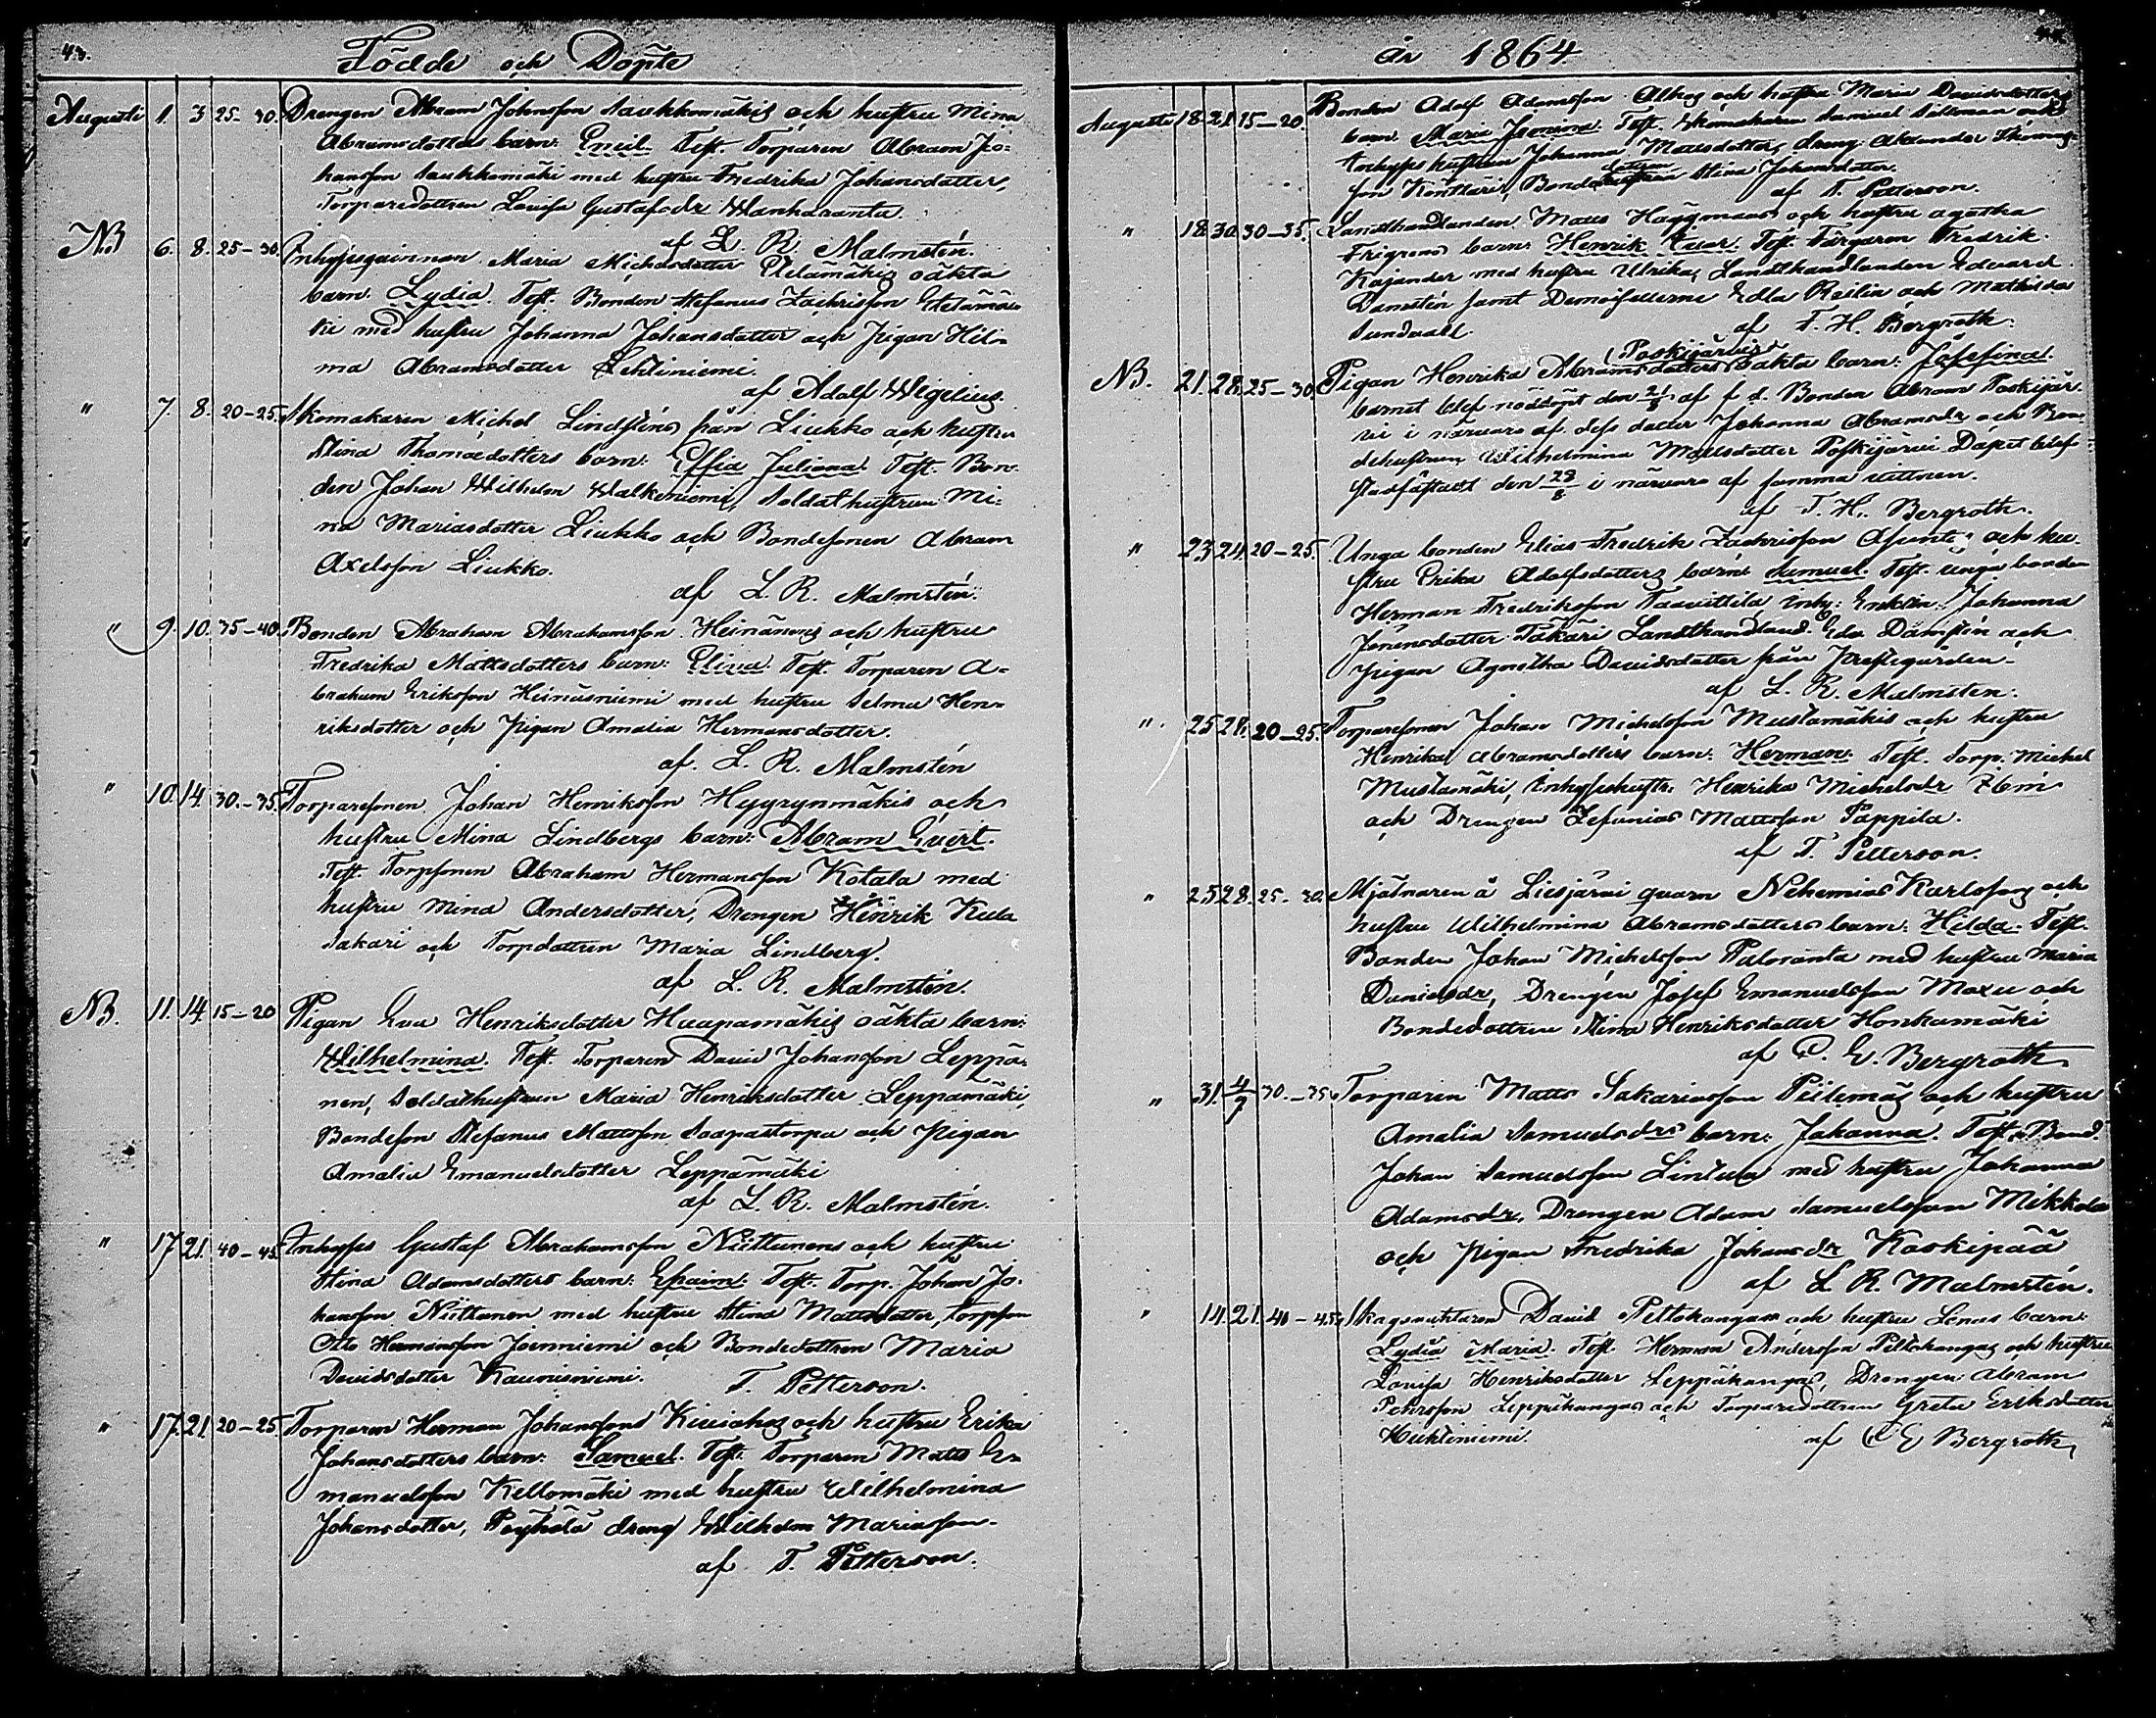 43.
Födde och Döpte
Augusti 1. 3 25-30. Drengen Abram Johnsson Saukkomäkis och hustru Mina
Abramsdotters barn: Emil. Test. Torparen Abram Jo=
hansson Saukkomäki med hustru Fredrika Johansdotter,
Torparedottren Lovisa Gustafsdr Wanharanta.
af L. R. Malmstén.
NB 6. 8. 25-30. Inhyses qvinnan Maria Michelsdotter Etelämäkis oäkta
barn: Lydia. Test. Bonden Stefanus Zachrisson Etelämä=
ki med hustru Johanna Johansdotter och pigan Hil=
ma Abramsdotter Lehtiniemi.
af Adolf Wegelius.
" 7. 8. 20-25. Skomakaren Michel Lindsténs från Liukko och hustru
Stina Thomasdotters barn: Effia Juliana. Test. Bon=
den Johan Wilhelm Walkeniemi, Soldathustrun Mi=
na Mariasdotter Liukko och Bondesonen Abram
Axelsson Liukko.
af L. R. Malmstén.
" 9. 10. 35-40. Bonden Abraham Abrahamsson Heinänens och hustru
Fredrika Mattsdotters barn: Elina. Test. Torparen A=
braham Eriksson Heinäsniemi med hustru Selma Hen=
riksdotter och pigan Amalia Hermansdotter.
af. L. R. Malmstén
" 10. 14. 30.-35. Torparesonen Johan Henriksson Hyyrynmäkis och
hustru Mina Lindbergs barn: Abram Evert.
Test. Torpsonen Abraham Hermansson Kotala med
hustru Mina Andersdotter, Drengen Henrik Kula
Sakari och Torpdottren Maria Lindberg.
af L. R. Malmstén.
NB. 11. 14. 15-20 Pigan Eva Henriksdotter Haapamäkis oäkta barn:
Wilhelmina. Test. Torparen David Johansson Leppä=
nen, Soldathustrun Maria Henriksdotter Leppämäki,
Bondeson Stefanus Mattsson Saapastorpa och pigan
Amalia Emanuelsdotter Leppämäki
af L. R. Malmstén.
" 17. 21. 40-45. Inhyses Gustaf Abrahamsson Niittunens och hustru
Stina Adamsdotters barn: Efraim. Test. Torp. Johan Jo=
hansson Niittunen med hustru Stina Mattsdotter, torpson
Otto Hermansson Joenniemi och Bondedottren Maria
Davidsdotter Kauniniemi.
T. Petterson.
" 17. 21. 20-25. Torparen Herman Johanssons Kiviahos och hustru Erika
Johansdotters barn: Samuel. Test. Torparen Matts E=
manuelsson Kellomäki med hustru Wilhelmina
Johansdotter, Peyhölä dreng Wilhelm Mariasson.
af T. Petterson.
år 1864
Augusti 18. 21. 15-20. Bonden Adolf Adamsson Alhos och hustru Maria Davidsdotters
barn: Maria Jemina. Test. Skomakaren Samuel Siltman och
Inhyses hustrun Johanna Mattsdotter, dreng. Alexander
son Konttäri, Bondedottren Stina Johansdotter.
af T. Petterson.
" 18. 30. 30-35. Landthandlanden Matts Häggmans och hustru Agatha
Frigrens barn: Henrik Ivar. Test. Färgaren Fredrik
Kajander med hustru Ulrika, Landthandlanden Edvard
Damstén samt Demoisellerne Edla Roilin och Mathilda
Sundvall.
af T. H. Bergroth.
NB. 21. 28. 25-30. Pigan Henrika Abramsdotters (Poskijärvis) oäkta barn: Josefina.
barnet blef nöddöpt den 21/8 af f. d. Bonden Abram Poskijär=
vi i närvaro af dess dotter Johanna Abramsdr och Bon=
dehustrun Wilhelmina Mattsdotter Poskijärvi. Dopet blef
stadfästadt den 28/8 i närvaro af samma vittnen.
af T. H. Bergroth.
" 23. 24. 20-25. Unga bonden Elias Fredrik Zachrisson Asunta och hu=
stru Erika Adolfsdotters barn: Samuel. Test. unga bonden
Herman Fredriksson Taavittila inhy: Enklin: Johanna
Jeremsdotter Takäri Landthandland. Edv. Damstén och
pigan Agnetha Davidsdotter från Prestegården.
af L. R. Malmstén.
" 25. 28. 20-25. Torparesonen Johan Michelsson Mustamäkis och hustru
Henrika Abramsdotters barn: Herman. Test. Torp. Michel
Mustamäki, Inhyseshustr. Henrika Michelsdr
och Drengen Zefanias Mattsson Pappila.
af T. Petterson.
" 25. 28. 25-30. Mjölnaren å Liesjärvi qvarn Nehemias Karlssons och
hustru Wilhelmina Abramsdotters barn: Hilda. Test.
Bonden Johan Michelsson Paloranta med hustru Maria
Danielsdr, Drengen Josef Emanuelsson Maxu och
Bondedottren Stina Henriksdotter Honkamäki
af C. E. Bergroth
" 31. 4/9 30.-35. Torparen Matts Sakariasson Piilemäs och hustru
Amalia Samuelsdrs barn: Johanna. Test. Bond.
Johan Samuelsson Lintua med hustru Johanna
Adamsdr, Drengen Adam Samuelsson Mikkola
och pigan Fredrika Johansdr Koskipää
af L. R. Malmstén.
" 14. 21. 40-45. Skogsvaktaren David Peltokangas och hustru Lenas barn:
Lydia Maria. Test. Herman Andersson Peltokangas och hustru
Lovisa Henriksdotter Leppäkangas, Drengen Abram
Petersson Leppäkangas och Torparedottren Greta Eriksdotter
Huhtiniemi.
af C E Bergroth